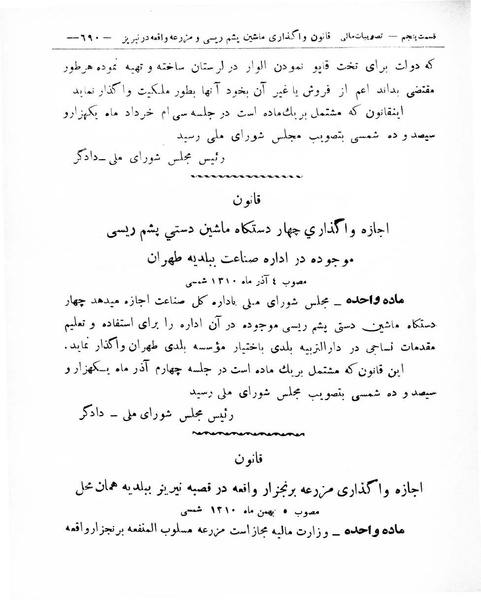 قسمت پنجم — تصویبات مالی قانون واگذاری ماشین پشم ریسی و مزرعه واقعه در نیریز —۶۹۰—
که دولت برای تخت قاپو نمودن الوار در لرستان ساخته و تهیه نموده هر طور
مقتضی بداند اعم از فروش یا غیر آن بخود آنها بطور ملکیت واگذار نماید
اینقانون که مشتمل بر یك ماده است در جلسه سی ام خرداد ماه یکهزار و
سیصد و ده شمسی بتصویب مجلس شورای ملی رسید
رئیس مجلس شورای ملی — دادگر
قانون
اجازه واگذاری چهار دستگاه ماشین دستی پشم ریسی
موجوده در اداره صناعت ببلدیه طهران
مصوب ٤ آذر ماه ۱۳۱۰ شمسی
ماده واحده — مجلس شورای ملی باداره کل صناعت اجازه میدهد چهار
دستگاه ماشین دستی پشم ریسی موجوده در آن اداره را برای استفاده و تعلیم
مقدمات نساجی در دارالتربیه بلدی باختیار مؤسسه بلدی طهران واگذار نماید.
این قانون که مشتمل بر یك ماده است در جلسه چهارم آذر ماه یکهزار و
سیصد و ده شمسی بتصویب مجلس شورای ملی رسید
رئیس مجلس شورای ملی — دادگر
قانون
اجازه واگذاری مزرعه برنجزار واقعه در قصبه نیریز ببلدیه همان محل
مصوب ٥ بهمن ماه ۱۳۱۰ شمسی
ماده واحده — وزارت مالیه مجاز است مزرعه مسلوب المنفعه برنجزار واقعه